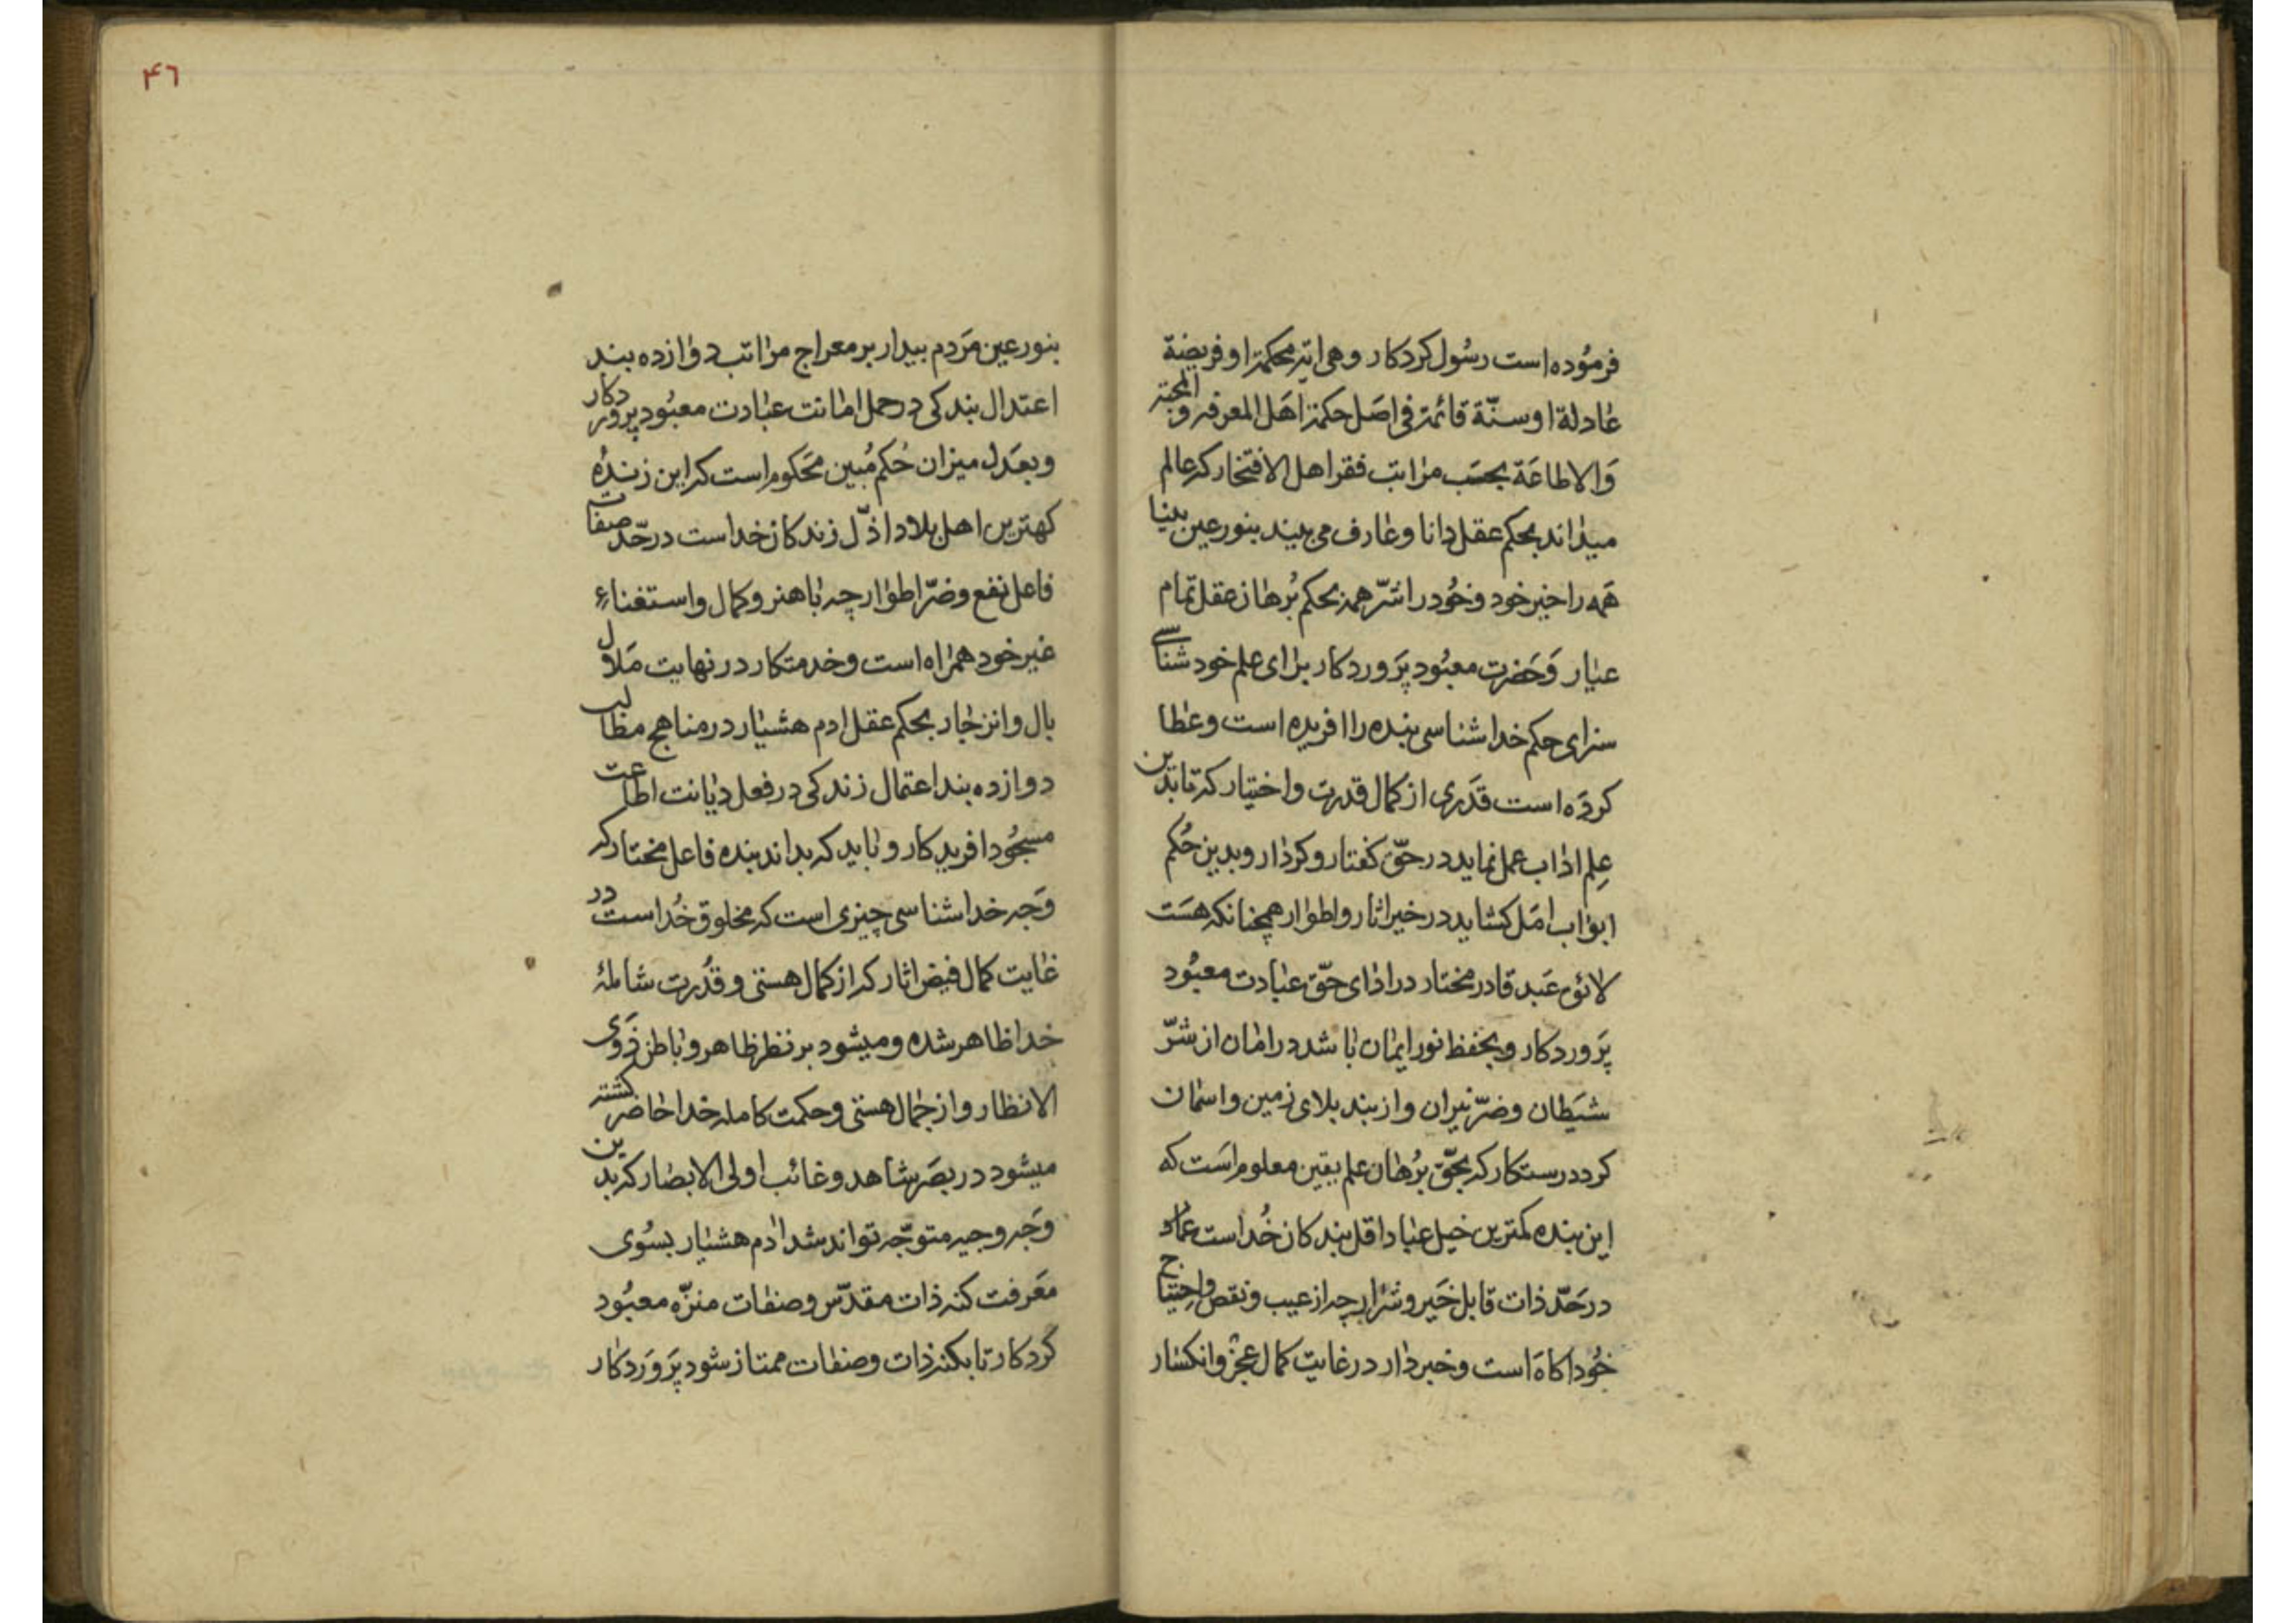 فرموده است رسول کردکار و هی ایة محکمة او فریضة
عادلة او سنّة قائمة فی اصل حکمة اهل المعرفه و المحبّه
والاطاعة بحسب مراتب فقرا هل الافتخار که عالم
میداند بحکم عقل دانا و عارف می بیند بنور عین بینا
همه را خیر خود و خود را شرّ همه بحکم برهان عقل تمام
عیار و حضرت معبود پروردکار برای علم خود شناسی
سزای حکم خدا شناسی بنده را افریده است و عطا
کرده است قدری از کمال قدرت و اختیار که تا بدین
علم اداب عمل نماید در حقّ کفتار و کردار و بدین حکم
ابواب امل کشاید در خیر اثار و اطوار همچنانکه هست
لائق عبد قادر مختار در ادای حقّ عبادت معبود
پروردکار و بحفظ نور ایمان باشد در امان از شرّ
شیطان و ضرّ نیران و از بند بلای زمین و اسمان
کردد رستکار که بحقّ برهان علم یقین معلوم است که
این بنده کمترین خیل عباد اقل بندکان خداست
در حدّ ذات قابل خیر و شرّ ارچه از عیب و نقص و احتیاج
خود اکاه است و خبردار در غایت کمال عجز و انکسار
۴٦
بنور عین مردم بیدار بر معراج مراتب دوازده بند
اعتدال بندکی در حمل امانت عبادت معبود پروردکار
و بعدل میزان حکم مبین محکوم است که این زنده
کهترین اهل بلاد اذلّ زندکان خداست در حدّ صفات
فاعل نفع و ضرّ اطوار چه با هنر و کمال و استغناء
غیر خود همراه است و خدمتکار در نهایت ملال
بال و انزجار بحکم عقل ادم هشیار در مناهج مطالب
دوازده بند اعتمال زندکی در فعل دیانت اطاعت
مسجود افریدکار و باید که بداند بنده فاعل مختار که
وجه خدا شناسی چیزی است که مخلوق خداست در
غایت کمال فیض اثار که از کمال هستی و قدرت شاملهٔ
خدا ظاهر شده و میشود بر نظر ظاهر و باطن ذوی
الانظار و از جمال هستی و حکمت کامله خدا حاضر کشته
میشود در بصر شاهد و غائب اولی الابصار که بدین
وجه وجیه متوجّه تواند شد ادم هشیار بسوی
معرفت کنه ذات مقدّس و صفات منزّه معبود
کردکار تا بکنه ذات و صفات ممتاز شود پروردکار